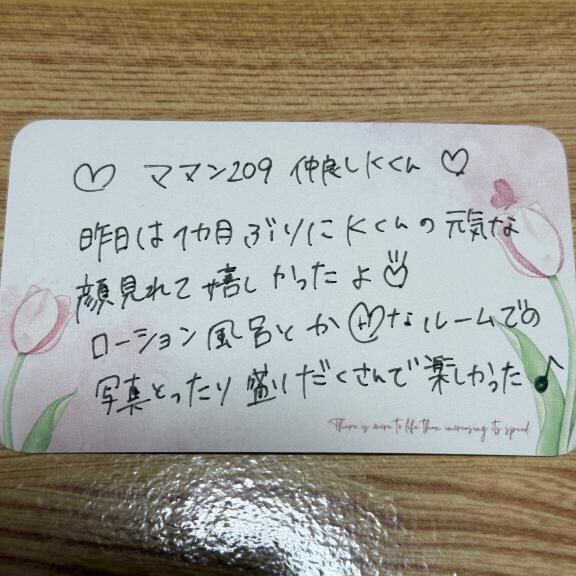 ♡ ママン209 仲良しKくん ♡
昨日は1カ月ぶりにKくんの元気な
顔見れて嬉しかったよ♡
ローション風呂とか Hなルームでの
写真とったり盛りだくさんで楽しかった♪
There is more to life than increasing its speed.